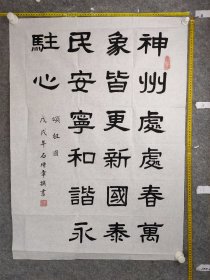 神州處處春萬
象皆更新國泰
民安寧和諧永
駐心
頌祖國
戊戌年
書